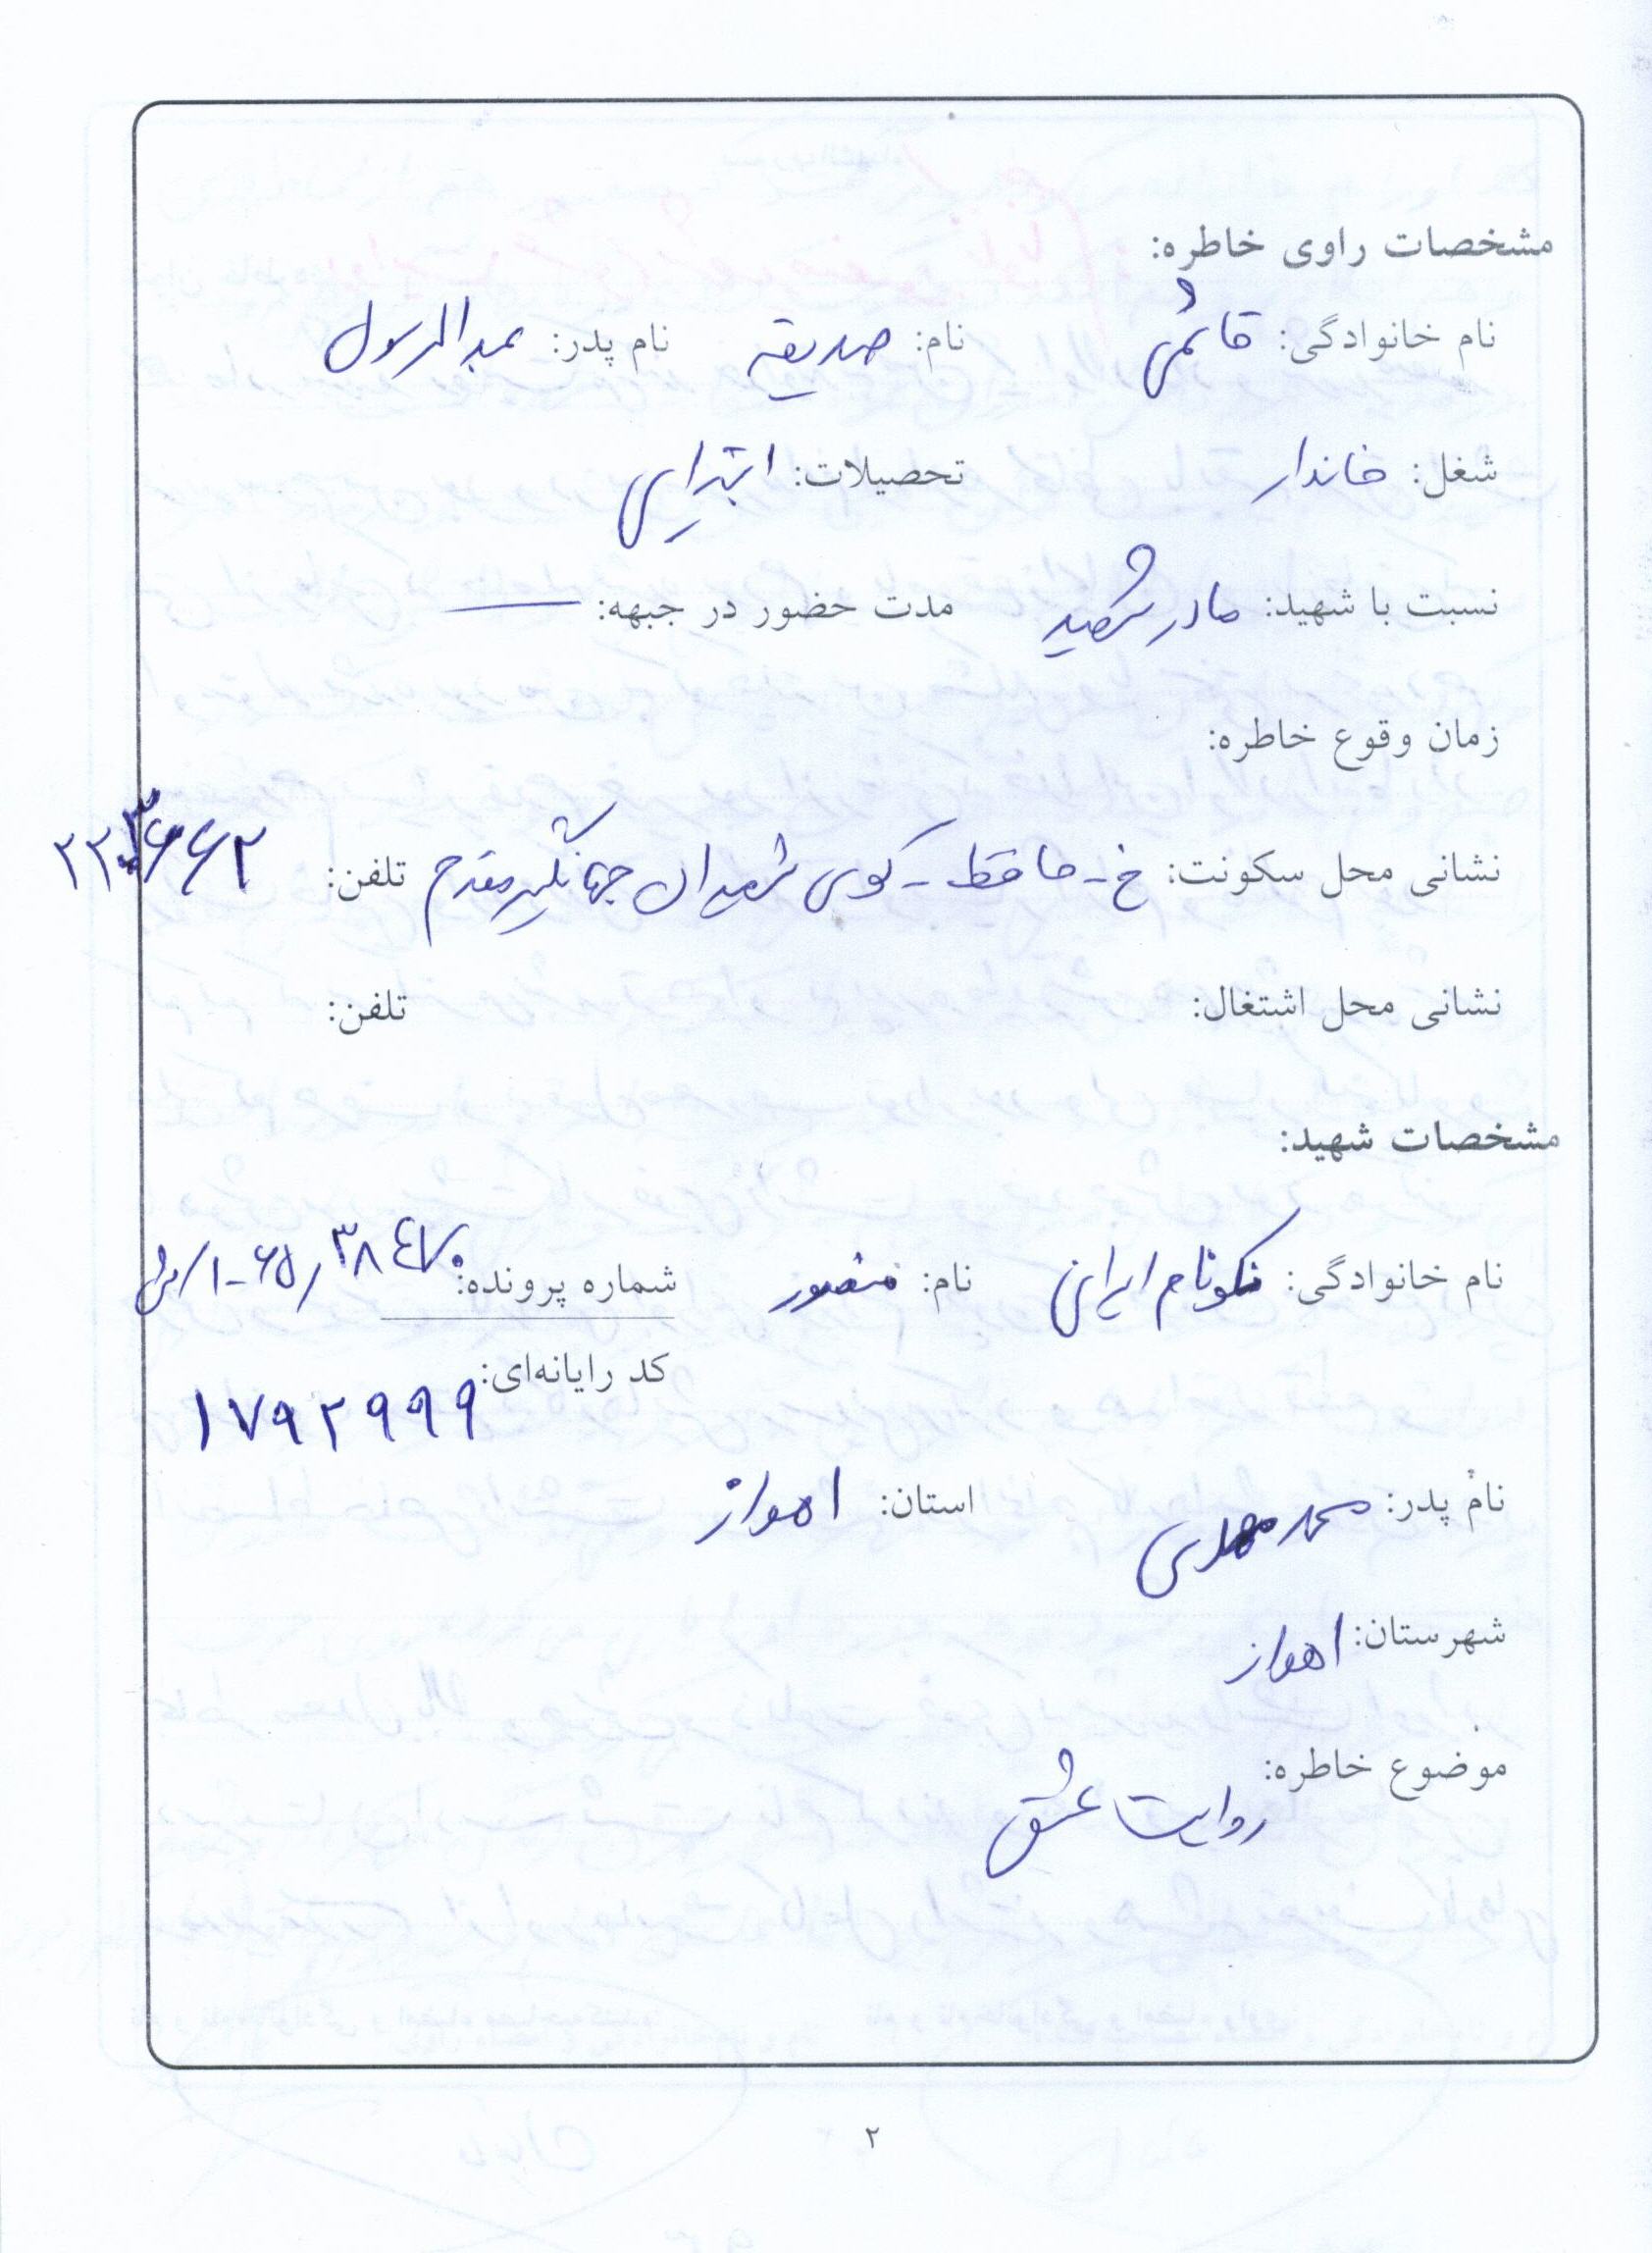 مشخصات راوی خاطره:
نام خانوادگی: قائمی نام: صدیقه نام پدر: عبدالرسول
شغل: خاندار تحصیلات: ابتدایی
نسبت با شهید: مادر شهید مدت حضور در جبهه: —
زمان وقوع خاطره:
نشانی محل سکونت: خ - حافظ - کوی شهیدان جهانگیر مقدم تلفن:
نشانی محل اشتغال: تلفن:
مشخصات شهید:
نام خانوادگی: نکونام ایرانی نام: منصور شماره پرونده:
کد رایانه‌ای: ۱۷۹۲۹۹۹
نام پدر: محمد مهدی استان: اهواز
شهرستان: اهواز
موضوع خاطره: روایت عشق
۲